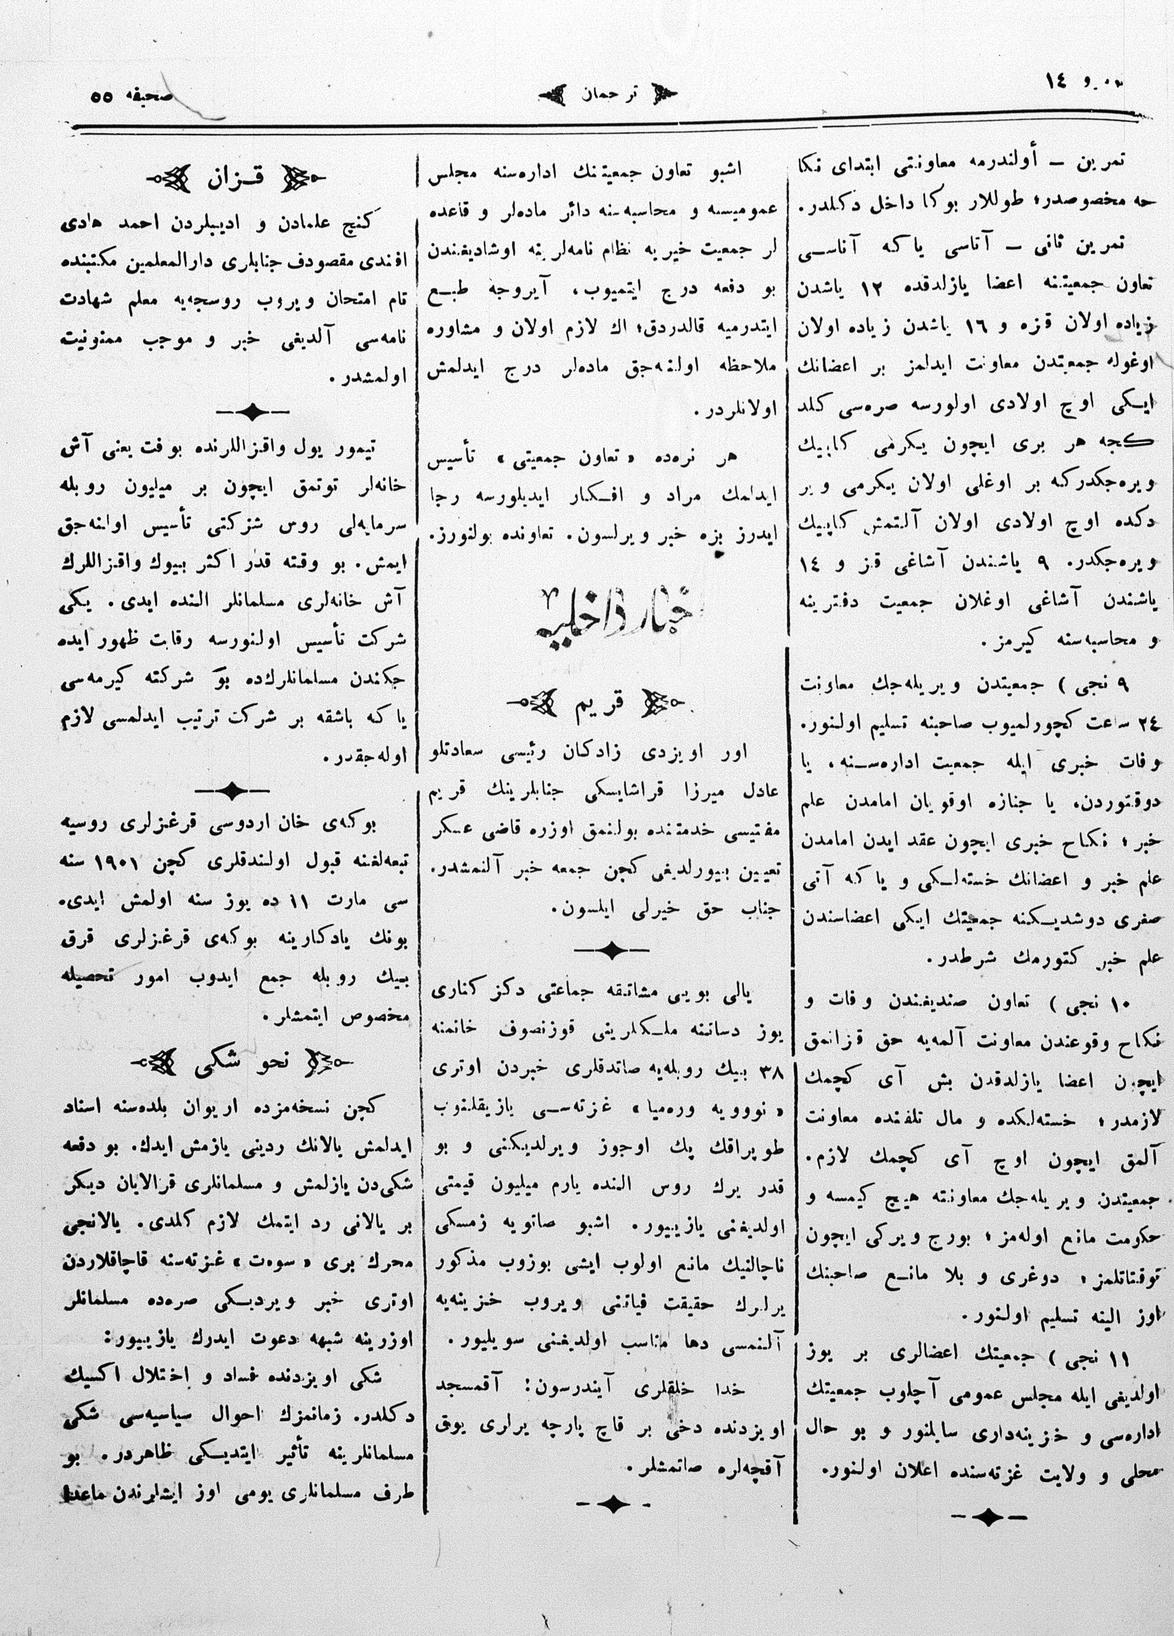 نومرو ١٤
ترجمان
صحيفه ٥٥
تمرين — أولندرمه معاونتى ابتداى نكا
حه مخصوصدر؛ طوللار بوكا داخل دكلدر.
تمرين ثانى — آتاسى ياكه آناسى
تعاون جمعيتنه اعضا يازلدقده ١٢ ياشدن
زياده اولان قزه و ١٦ ياشدن زياده اولان
اوغوله جمعيتدن معاونت ايدلمز بر اعضانك
ايكى اوچ اولادى اولورسه صره‌سى كلد
كجه هر برى ايچون يكرمى كاپيك
ويره‌جكدركه بر اوغلى اولان يكرمى و بر
دكده اوچ اولادى اولان آلتمش كاپيك
ويره‌جكدر. ٩ ياشندن آشاغى قز و ١٤
ياشندن آشاغى اوغلان جمعيت دفترينه
و محاسبه‌سنه كيرمز.
٩ نجى ) جمعيتدن ويريله‌جك معاونت
٢٤ ساعت كچورلميوب صاحبنه تسليم اولنور.
وفات خبرى ايله جمعيت اداره‌سنه، يا
دوقتوردن، يا جنازه اوقويان امامدن علم
خبر؛ نكاح خبرى ايچون عقد ايدن امامدن
علم خبر و اعضانك خسته‌لكى و ياكه آتى
صغرى دوشديكنه جمعيتك ايكى اعضاسندن
علم خبر كتورمك شرطدر.
١٠ نجى ) تعاون صنديغندن وفات و
نكاح وقوعندن معاونت آلمه‌يه حق قزانمق
ايچون اعضا يازلدقدن بش آى كچمك
لازمدر؛ خسته‌لكده و مال تلفنده معاونت
آلمق ايچون اوچ آى كچمك لازم.
جمعيتدن ويريله‌جك معاونته هيچ كيمسه و
حكومت مانع اوله‌مز؛ بورج ويركى ايچون
توقتاتلمز؛ دوغرى و بلا مانع صاحبنك
اوز الينه تسليم اولنور.
١١ نجى ) جمعيتك اعضالرى بر يوز
اولديغى ايله مجلس عمومى آچلوب جمعيتك
اداره‌سى و خزينه‌دارى سايلنور و بو حال
محلى و ولايت غزته‌سنده اعلان اولنور.
اشبو تعاون جمعيتنك اداره‌سنه مجلس
عموميسنه و محاسبه‌سنه دائر ماده‌لر و قاعده
لر جمعيت خيريه نظام نامه‌لرينه اوشاديغندن
بو دفعه درج ايتميوب، آيروجه طبع
ايتدرميه قالدردق؛ اك لازم اولان و مشاوره
ملاحظه اولنه‌جق ماده‌لر درج ايدلمش
اولانلردر.
هر نره‌ده «تعاون جمعيتى» تأسيس
ايدلمك مراد و افكار ايديلورسه رجا
ايدرز بزه خبر ويرلسون. تعاونده بولنورز.
اخبار داخليه
قريم
اور اويزدى زادكان رئيسى سعادتلو
عادل ميرزا قراشايسكى جنابلرينك قريم
مفتيسى خدمتنده بولنمق اوزره قاضى عسكر
تعيين بيورلديغى كچن جمعه خبر آلنمشدر.
جناب حق خيرلى ايلسون.
يالى بويى مشاتقه جماعتى دكز كنارى
يوز دساتنه ملكلرينى قوزنصوف خانمنه
٣٨ بيك روبله‌يه صاتدقلرى خبردن اوترى
«نوويه وره‌ميا» غزته‌سى يازيقلنوب
طوپراقك پك اوجوز ويرلديكنى و بو
قدر يرك روس النده يارم ميليون قيمتى
اولديغنى يازييور. اشبو صاتويه زمسكى
ناچالنيك مانع اولوب ايشى بوزوب مذكور
يرلرك حقيقت فياتنى ويروب خزينه‌يه
آلنمسى دها مناسب اولديغنى سويليور.
خدا خلقلرى آيندرسون! آقمسجد
اويزدنده دخى بر قاچ پارچه يرلرى يوق
آقچه‌لره صاتمشلر.
قزان
كنچ علمادن و اديبلردن احمد هادى
افندى مقصودف جنابلرى دارالمعلمين مكتبنده
تام امتحان ويروب روسجه‌يه معلم شهادت
نامه‌سى آلديغى خبر و موجب ممنونيت
اولمشدر.
تيمور يول واقزاللرنده بوفت يعنى آش
خانه‌لر توتمق ايچون بر ميليون روبله
سرمايه‌لى روس شركتى تأسيس اولنه‌جق
ايمش. بو وقته قدر اكثر بيوك واقزاللرك
آش خانه‌لرى مسلمانلر النده ايدى. يكى
شركت تأسيس اولنورسه رقابت ظهور ايده
جكندن مسلمانلرك‌ده بو شركته كيرمه‌سى
ياكه باشقه بر شركت ترتيب ايدلمسى لازم
اوله‌جقدر.
بوكه‌ى خان اردوسى قرغزلرى روسيه
تبعه‌لغنه قبول اولندقلرى كچن ١٩٠١ سنه
سى مارت ١١ ده يوز سنه اولمش ايدى.
بونك يادكارينه بوكه‌ى قرغزلرى قرق
بيك روبله جمع ايدوب امور تحصيله
مخصوص ايتمشلر.
نحو شكى
كچن نسخه‌مزده اريوان بلده‌سنه اسناد
ايدلمش يالانك ردينى يازمش ايدك. بو دفعه
شكى‌دن يازلمش و مسلمانلرى قرالايان ديكر
بر يالانى رد ايتمك لازم كلدى. يالانجى
محرك برى «سوه‌ت» غزته‌سنه قاچاقلاردن
اوترى خبر ويرديكى صره‌ده مسلمانلر
اوزرينه شبهه دعوت ايدرك يازييور:
شكى اويزدنده فساد و اختلال اكسيك
دكلدر. زمانمزك احوال سياسيه‌سى شكى
مسلمانلرينه تأثير ايتديكى ظاهردر. بو
طرف مسلمانلرى يومى اوز ايشلرندن ماعدا